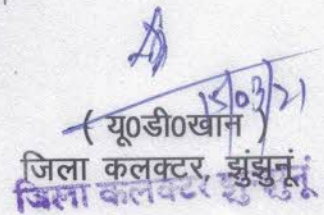 15/03/21
( यू0डी0खान )
जिला कलक्टर, झुंझुनूं
जिला कलक्टर झुन्झुनूं